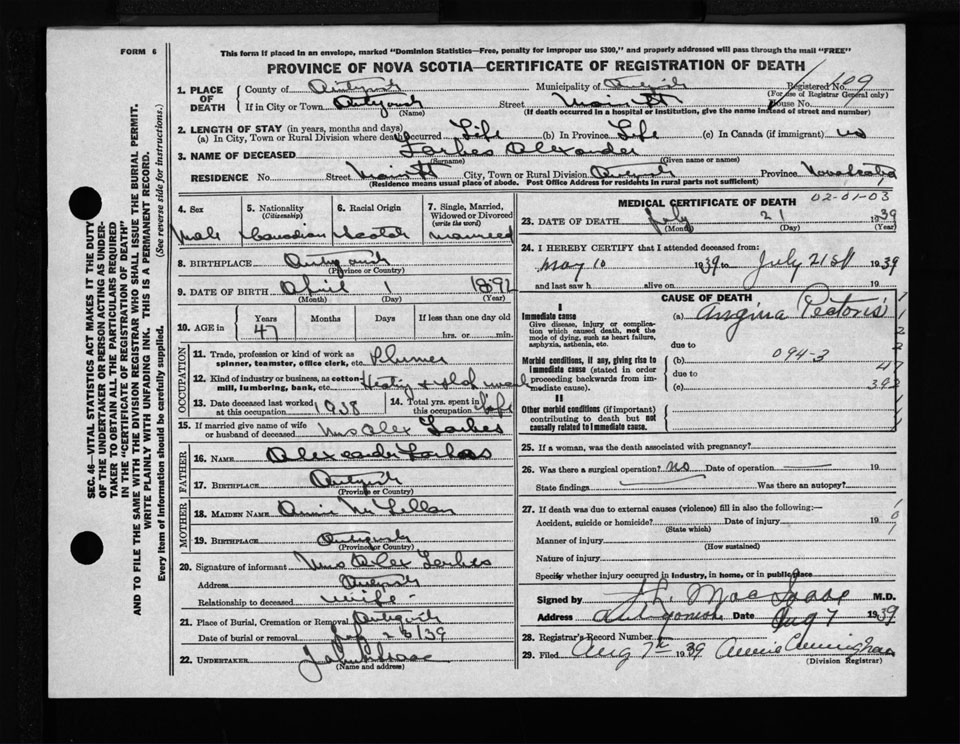 FORM 6
This form if placed in an envelope, marked "Dominion Statistics—Free, penalty for improper use $300," and properly addressed will pass through the mail "FREE"
PROVINCE OF NOVA SCOTIA—CERTIFICATE OF REGISTRATION OF DEATH
SEC. 46—VITAL STATISTICS ACT MAKES IT THE DUTY
OF THE UNDERTAKER OR PERSON ACTING AS UNDER-
TAKER TO OBTAIN ALL THE PARTICULARS REQUIRED
IN THE "CERTIFICATE OF REGISTRATION OF DEATH"
AND TO FILE THE SAME WITH THE DIVISION REGISTRAR WHO SHALL ISSUE THE BURIAL PERMIT.
WRITE PLAINLY WITH UNFADING INK. THIS IS A PERMANENT RECORD.
Every item of information should be carefully supplied. (See reverse side for instructions.)
1. PLACE OF DEATH
County of Antigonish Municipality of Antigonish Registered No. 609
(For use of Registrar General only)
If in City or Town Antigonish Street Main St House No.
(Name) (If death occurred in a hospital or institution, give the name instead of street and number)
2. LENGTH OF STAY (in years, months and days)
(a) In City, Town or Rural Division where death occurred Life (b) In Province Life (c) In Canada (if immigrant) no
3. NAME OF DECEASED Forbes Alexander
(Surname) (Given name or names)
RESIDENCE No. Street Main St City, Town or Rural Division Antigonish Province Nova Scotia
(Residence means usual place of abode. Post Office Address for residents in rural parts not sufficient)
4. Sex
Male
5. Nationality
(Citizenship)
Canadian
6. Racial Origin
Scotch
7. Single, Married,
Widowed or Divorced
(write the word)
married
8. BIRTHPLACE Antigonish
(Province or Country)
9. DATE OF BIRTH April 1 1892
(Month) (Day) (Year)
10. AGE in
Years Months Days If less than one day
47 hrs. or min.
OCCUPATION
11. Trade, profession or kind of work as
spinner, teamster, office clerk, etc. Plumer
12. Kind of industry or business, as cotton-
mill, lumbering, bank, etc. Heating &
13. Date deceased last worked
at this occupation 1938
14. Total yrs. spent in
this occupation
15. If married give name of wife
or husband of deceased Mrs Alex Forbes
FATHER
16. NAME Alexander Forbes
17. BIRTHPLACE Antigonish
(Province or Country)
MOTHER
18. MAIDEN NAME Annie McLellan
19. BIRTHPLACE Antigonish
(Province or Country)
20. Signature of informant Mrs Alex Forbes
Address Antigonish
Relationship to deceased wife
21. Place of Burial, Cremation or Removal Antigonish
Date of burial or removal 23/39
22. UNDERTAKER
(Name and address)
MEDICAL CERTIFICATE OF DEATH
02-01-03
23. DATE OF DEATH July 21 1939
(Month) (Day) (Year)
24. I HEREBY CERTIFY that I attended deceased from:
May 10 1939 to July 21st 1939
and last saw h alive on 19
CAUSE OF DEATH
I
Immediate cause
Give disease, injury or complica-
tion which caused death, not the
mode of dying, such as heart failure,
asphyxia, asthenia, etc.
(a) Angina Pectoris
due to
Morbid conditions, if any, giving rise to
immediate cause (stated in order
proceeding backwards from im-
mediate cause).
(b) 094-3
due to
(c)
47
392
II
Other morbid conditions (if important)
contributing to death but not
causally related to immediate cause.
25. If a woman, was the death associated with pregnancy?
26. Was there a surgical operation? no Date of operation 19
State findings Was there an autopsy?
27. If death was due to external causes (violence) fill in also the following:—
Accident, suicide or homicide? Date of injury 19
(State which)
Manner of injury
(How sustained)
Nature of injury
Specify whether injury occurred in industry, in home, or in public place
Signed by MacIsaac M.D.
Address Antigonish Date Aug 7 1939
28. Registrar's Record Number
29. Filed Aug 7th 1939 Annie Cunningham
(Division Registrar)